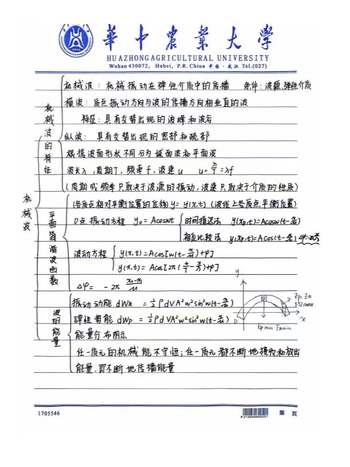 華中農業大學
HUAZHONG AGRICULTURAL UNIVERSITY
Wuhan 430072, Hubei, P.R.China 中国·武汉 Tel.(027)
机械波
机械波的特征
机械波：机械振动在弹性介质中的传播 条件：波源,弹性介质
横波：质点振动方向与波的传播方向相垂直的波
特征：具有交替出现的波峰和波谷
纵波：具有交替出现的密部和疏部
根据波面形状不同分为球面波和平面波
波长λ,周期T,频率ν,波速u u=λ/T=λf
(周期或频率只取决于波源的振动,波速只取决于介质的性质)
平面简谐波函数
(各质点相对平衡位置的位移) y=y(x,t) (波线上各质点平衡位置)
O点振动方程 y₀=Acosωt
时间推迟法 y(x,t)=Acosω(t-x/u)
相位比较法 y(x,t)=Acos(t-x/u)
波动方程 y(x,t)=Acos[ω(t-x/u)+φ]
y(x,t)=Acos[2π(t/T-x/λ)+φ]
Δφ=-2π
波的能量
振动动能 dWk=½ρdVA²ω²sin²ω(t-x/u)
弹性势能 dWp=½ρdVA²ω²sin²ω(t-x/u)
能量分布图示
任一质元的机械能不守恒,任一质元都不断地接收和放出
能量,即不断地传播能量
y
x
1705546
第 页